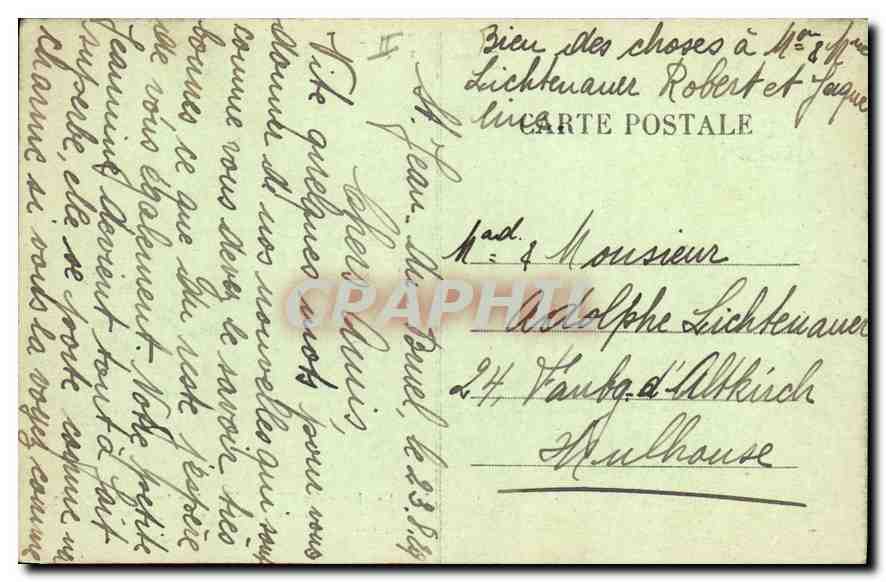 II
St. Jean du Bruel, le 23.8.29
Chers Amis,
Vite quelques mots pour vous
donner de nos nouvelles qui sont
comme vous devez le savoir très
bonnes, ce que du reste j'espère
de vous également. Notre petite
Jeannine devient tout à fait
superbe, elle se porte comme un
charme si vous la voyez comme
Bien des choses à Mr & Mme
Lichtenauer Robert et Jaque
line.
CARTE POSTALE
Mad. & Monsieur
Adolphe Lichtenauer
24, Faubg. d'Altkirch
Mulhouse
CPAPHIL